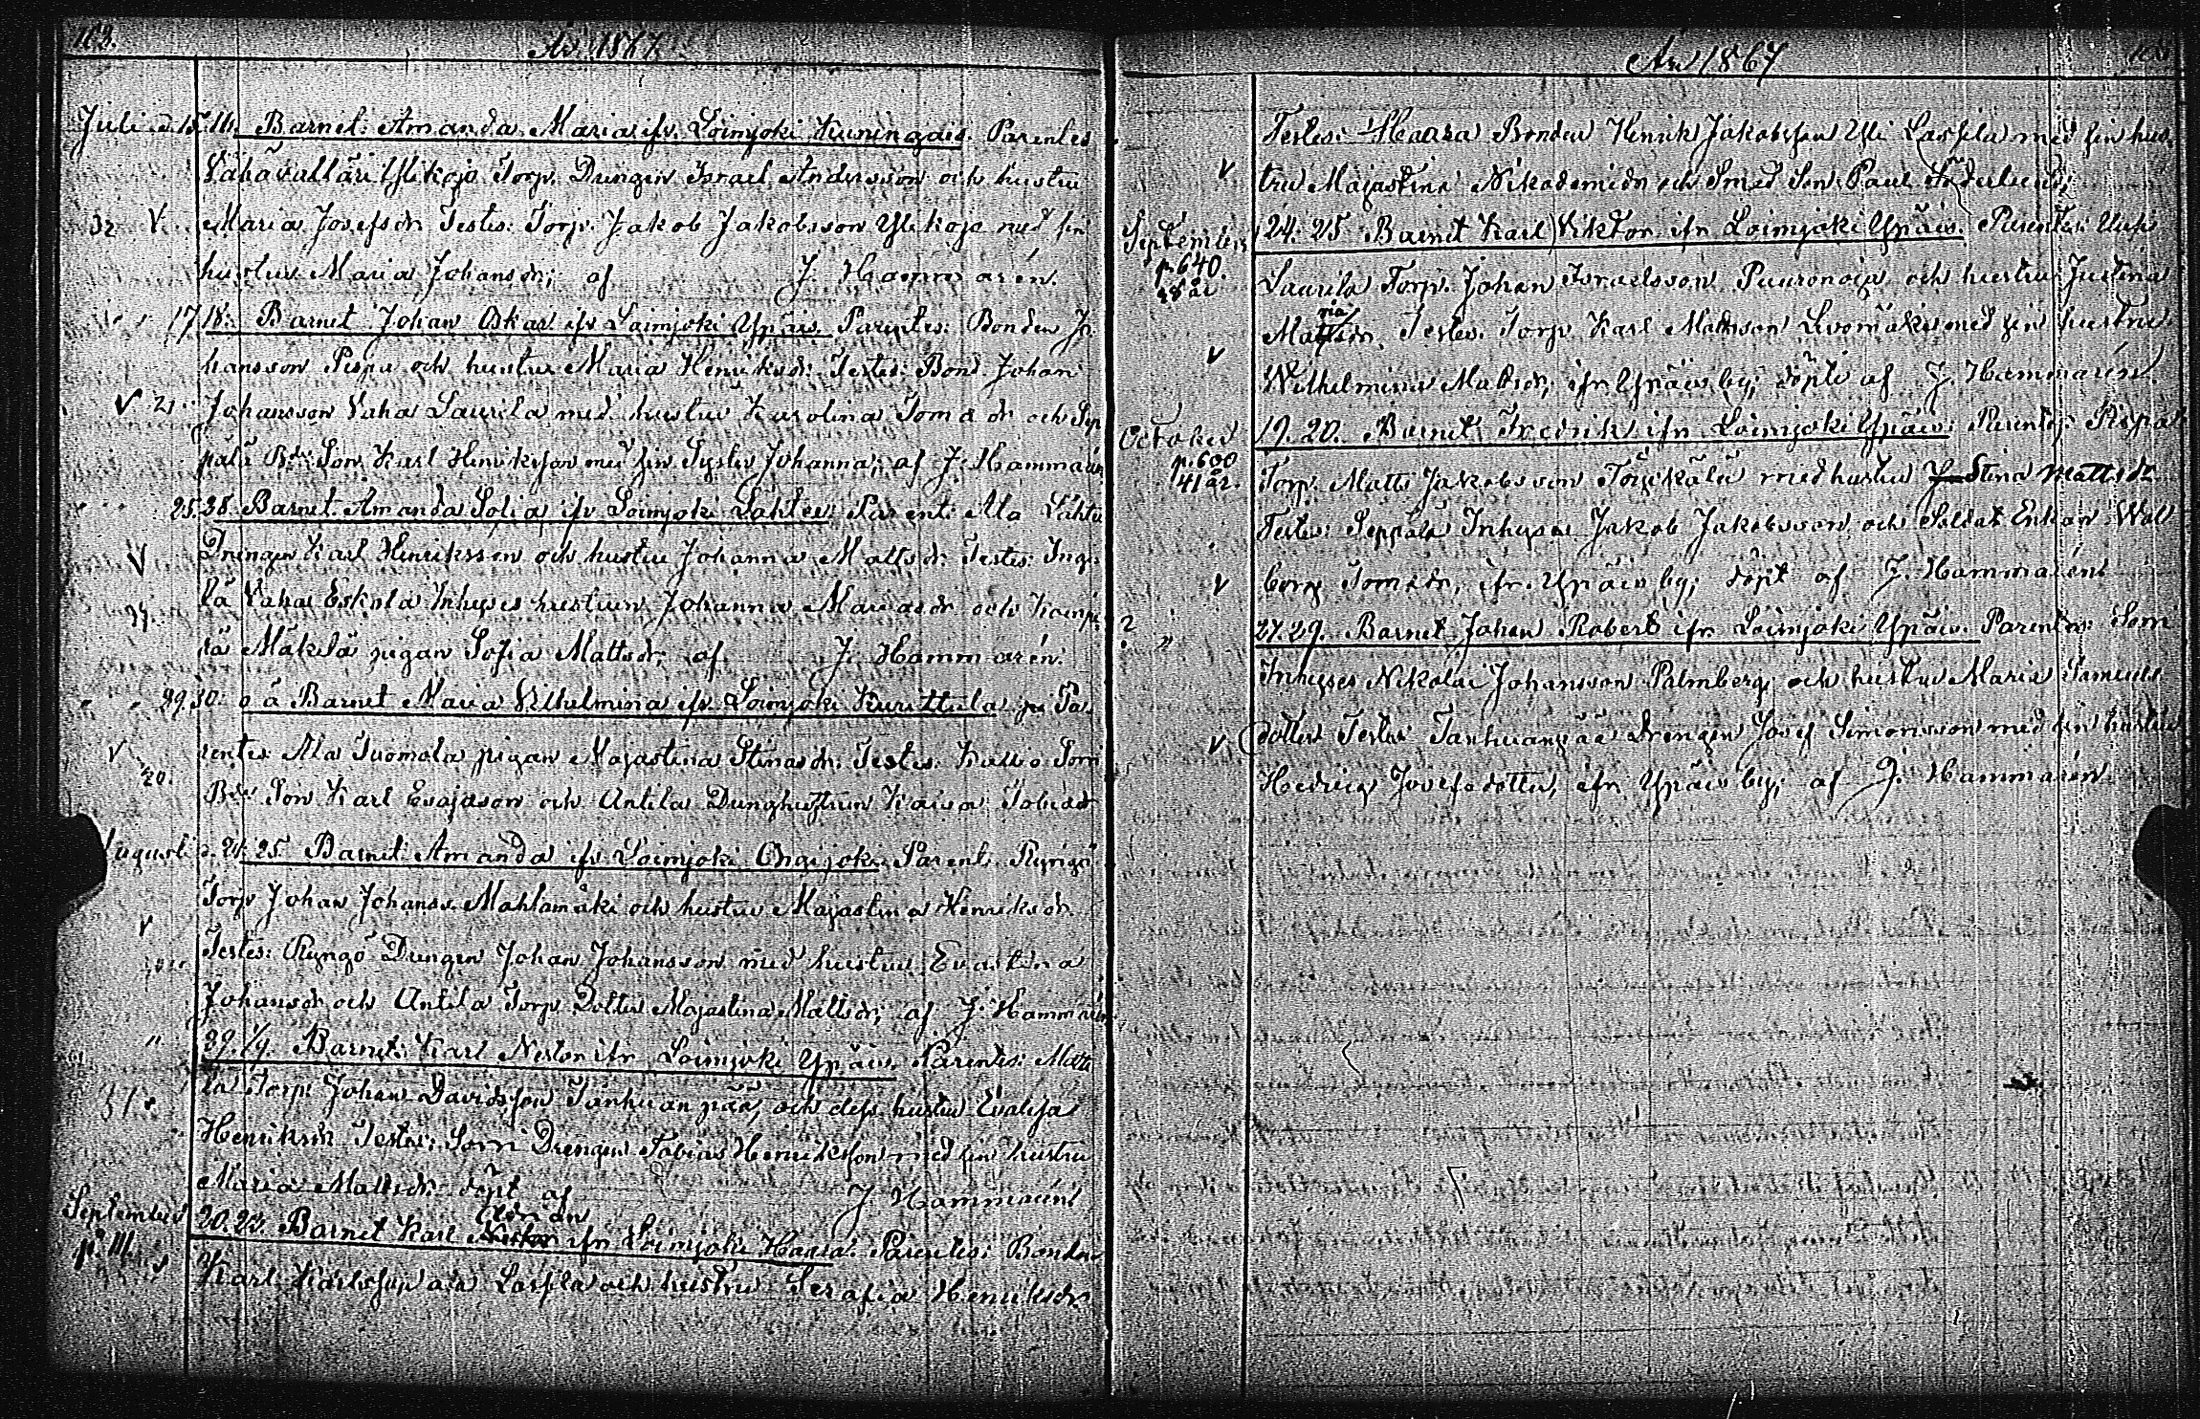 102.
År 1867
Juli d. 15. 16. Barnet: Amanda Maria ifr. Loimjoki Kuningais. Parentes
Vähävalläri Ylikojo Torp. Drengen Israel Andersson och hustru
32 V. Maria Josefsdr. Testes: Torp. Jakob Jakobsson Ylikojo med sin
hustru Maria Johansdr; af J. Hammarén.
17. 18. Barnet Johan Oskar ifr Loimjoki Ypäis. Parentes: Bonden Jo-
hansson Pispa och hustru Maria Henriksdr. Testes: Bond. Johan
V 21. Johansson Vaha Laurila med hustru Karolina Tomasdr och Sep
pälä Bde Son Karl Henriksson med sin Syster Johanna; af J. Hammarén
25. 28. Barnet Amanda Sofia ifr Loimjoki Lähtee. Parent: Ala Lähtee
V Drengen Karl Henriksson och hustru Johanna Mattsdr. Testes: Inge-
lä Vaha Eskola Inhyses hustrun Johanna Mariasdr och
Mäkilä pigan Sofia Mattsdr; af J. Hammarén.
29. 30. o ä Barnet Maria Wilhelmina ifr. Loimjoki Kurittula Pa-
V rentes: Ala Tuomola pigan Majastina Stinasdr. Testes: Kallio Sorri
20. Bde Son Karl Esajasson och Antila Drenghustrun Kaisa
Augusti d. 24. 25 Barnet Amanda ifr Loimjoki Onnijoki. Parent: Ryngö
V Torp. Johan Johanss. Mahlamäki och hustru Majastina Henriksdr.
Testes: Ryngö Drengen Johan Johansson med hustru Evastina
Johansdr och Antila Torp. Dotter Majastina Mattsdr; af J. Hammarén
" 29. 1/9. Barnet: Karl Nestor ifr Loimjoki Ypäis. Parentes: Matti
la Torp. Johan Davidsson Tanhuanpää, och dess hustru Evalisa
Henriksdr. Testes: Sorri Drengen Tobias Henriksson med sin hustru
Maria Mattsdr. döpt af J. Hammarén
September 20. 23. Barnet Karl Nestor ifr Loimjoki Haara. Parentes: Bonden
p. 111. V Karl Karlsson Ala Lassila och hustru Serafia Henriksdr.
År 1867
Testes: Haara Bonden Henrik Jakobsson Yli Lassila med sin hus-
V tru Majastina Nikodemidr och Smed Son Paul Söderlund;
September 24. 25 Barnet Karl Viktor ifr Loimjoki Ypäis. Parentes:
p. 640. Laurila Torp. Johan Israelsson Puuronoja och hustru Justina
38 år Mattsdr. Testes: Torp. Karl Mattsson med sin hustru
V Wilhelmina Mattsdr, ifr Ypäis by; döpt af J. Hammarén.
October 19. 20. Barnet Fredrik ifr Loimjoki Ypäis. Parentes: Pispa
p. 600 Torp. Matts Jakobsson med hustru Stina Mattsdr
41 år. Testes: Seppälä Inhyses Jakob Jakobsson och Soldat Enkan Wall
V borg Tomasdr, ifr. Ypäis by; döpt af J. Hammarén
? " 27. 29. Barnet Johan Robert ifr Loimjoki Ypäis. Parentes: Sorri
Inhyses Nikolai Johansson Palmberg och hustru Maria Samuels
V dotter Testes Tanhuanpää Drengen Josef Simonsson med sin hustru
Hedvig Josefsdotter, ifr Ypäis by; af J. Hammarén